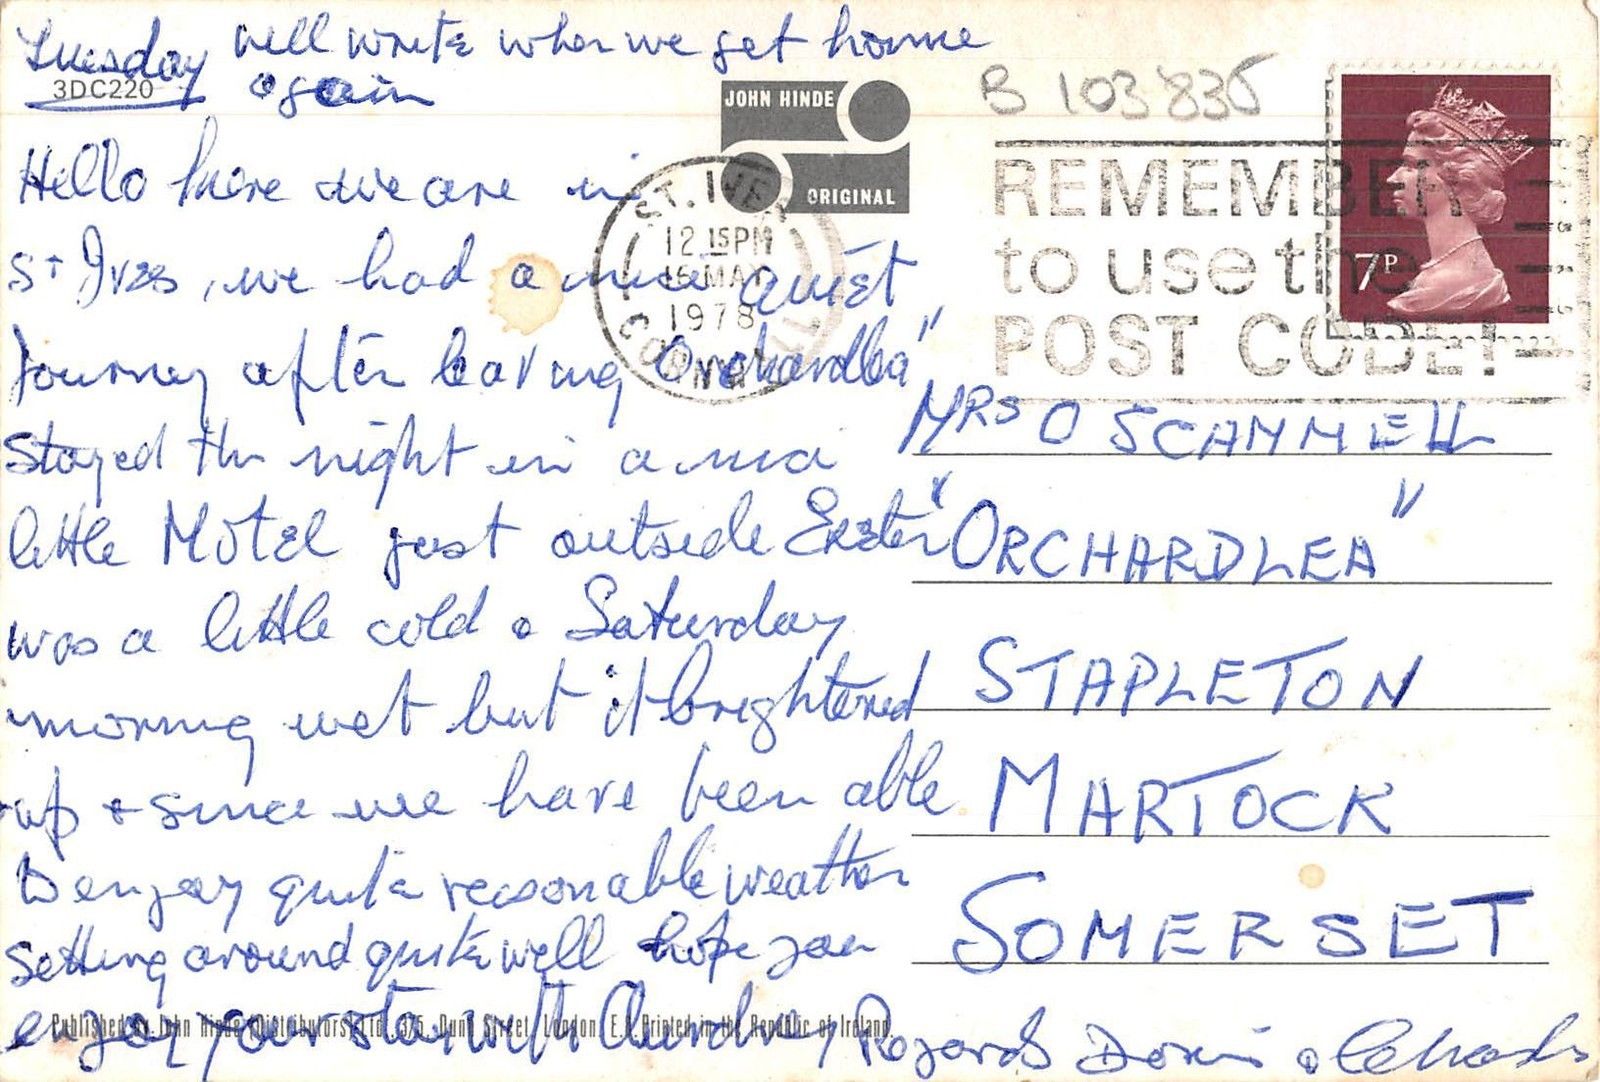 Tuesday will write when we get home
again
3DC220
Hello here we are in
St Ives, we had a nice quiet
journey after leaving "Orchardlea"
stayed the night in a nice
little Motel just outside Exeter
was a little cold & Saturday
morning wet but it brightened
up & since we have been able
to enjoy quite reasonable weather
getting around quite well hope you
enjoy your stay with Audrey
Regards Doris &
Published by John Hinde (Distributors) Ltd., 3/5, Dunn Street, London, E.8. Printed in the Republic of Ireland.
JOHN HINDE
ORIGINAL
B 103835
ST. IVES
12.15PM
16 MAY
1978
CORNWALL
REMEMBER
to use the
POST CODE!
7P
MRS O SCAMMELL
"ORCHARDLEA"
STAPLETON
MARTOCK
SOMERSET